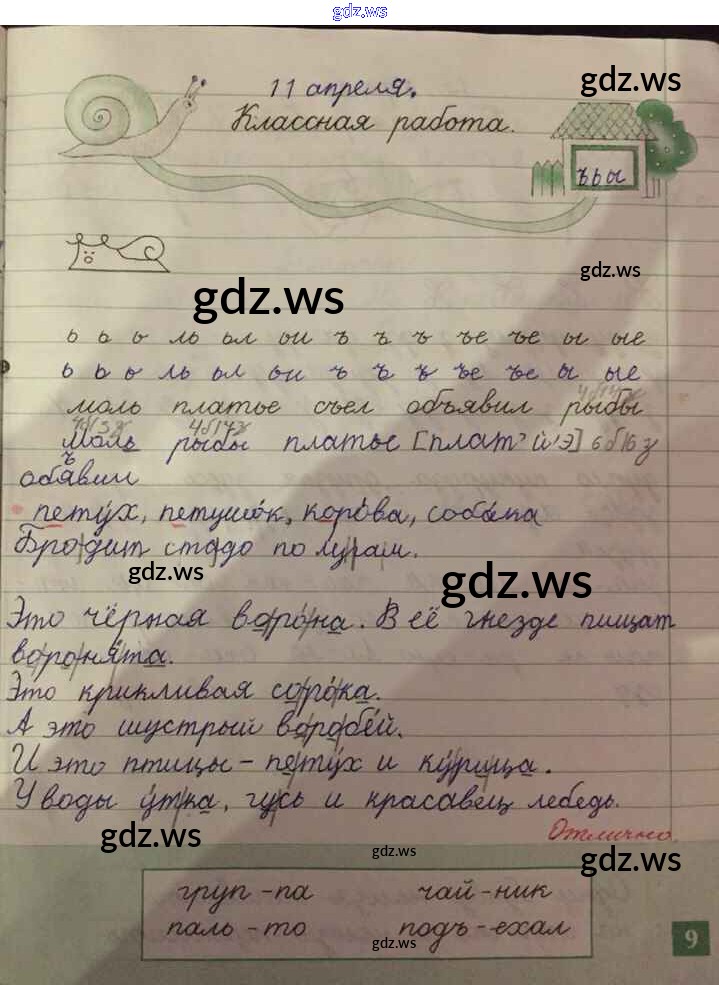 gdz.ws
11 апреля.
gdz.ws
Классная работа.
ъьы
gdz.ws
gdz.ws
ь ь ь ль ьл ьи ъ ъ ъ ъе ъе ы ые
ь ь ь ль ьл ьи ъ ъ ъ ъе ъе ы ые
моль платье съел объявил рыбы
4б/4з
4б/3з 4б/4з
Моль рыбы платье [плат'й'э] 6б/6з
объявил
петух, петушок, корова, собака
Бродит стадо по лугам.
gdz.ws gdz.ws
Это чёрная ворона. В её гнезде пищат
воронята.
Это крикливая сорока.
А это шустрый воробей.
И это птицы - петух и курица.
У воды утка, гусь и красавец лебедь.
Отлично.
gdz.ws gdz.ws gdz.ws
груп-па чай-ник
паль-то подъ-ехал
gdz.ws
9